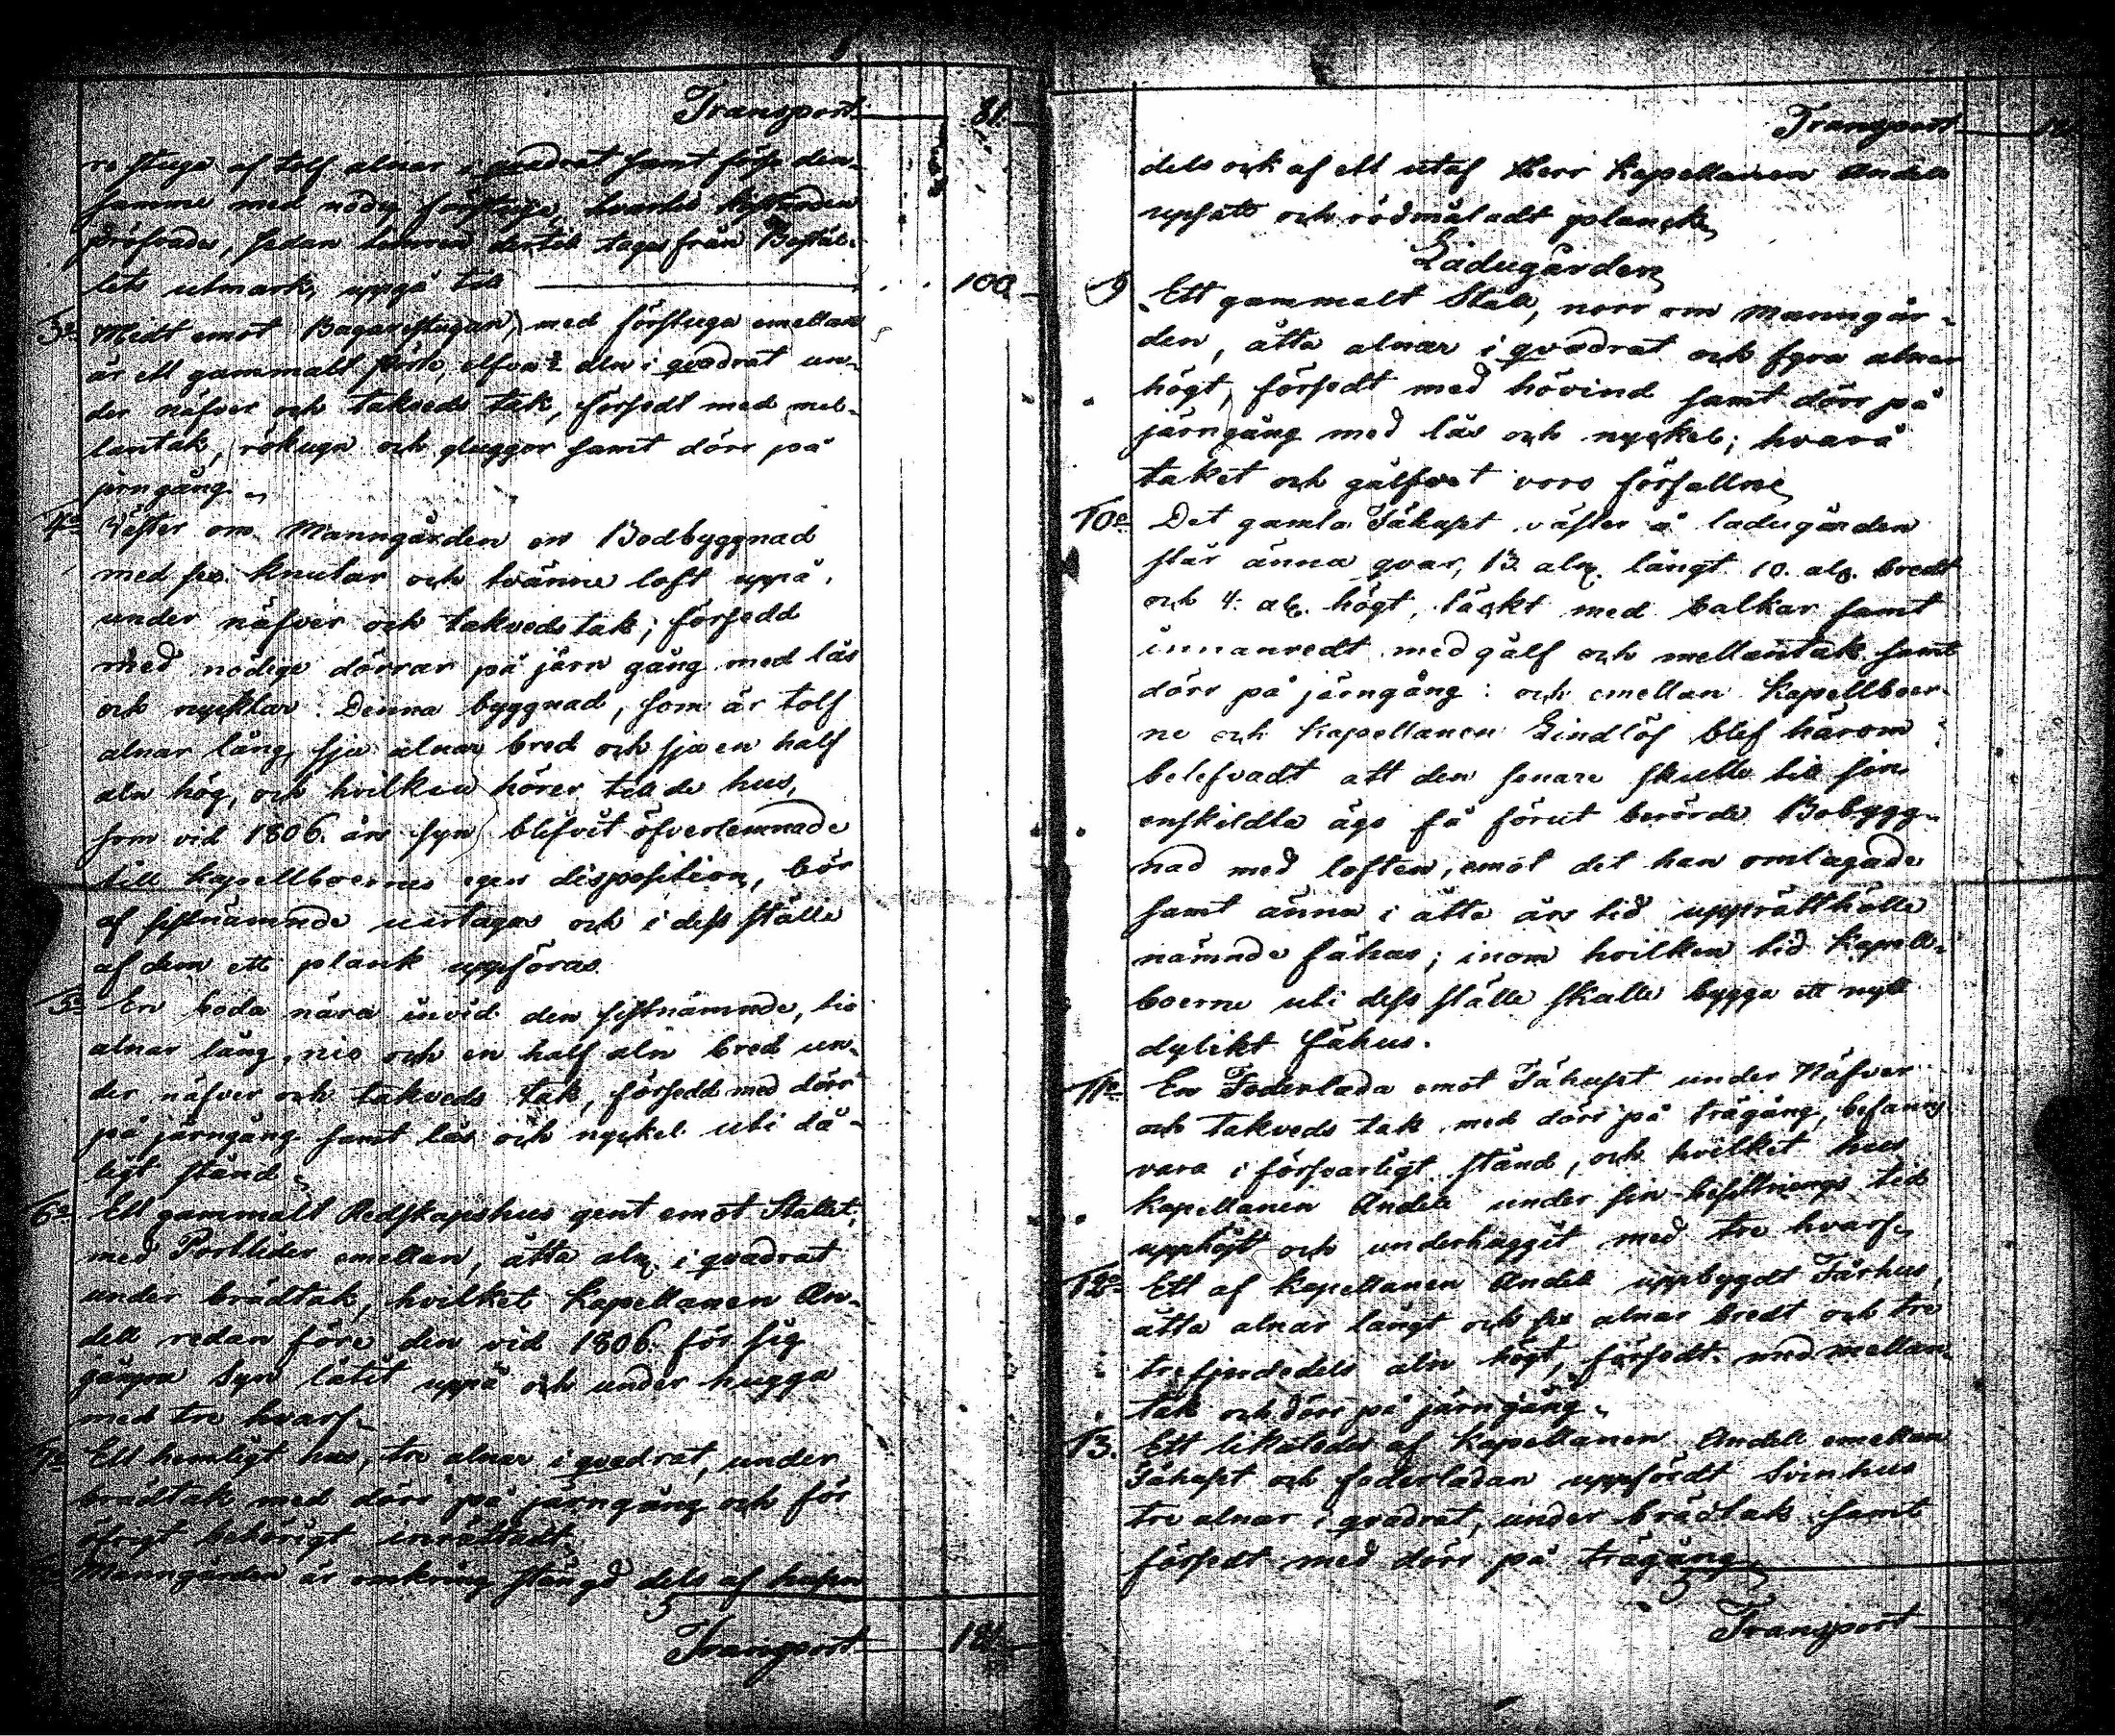 Transport 81.
re stuga af tolf alnar i qvadrat samt förse den-
samma med nödig förstuga, hvartil kostnaden
pröfvades, sedan timren dertil tages från Bostäl-
lets utmark, uppgå till 100
3o Midt emot Bagarestugan, med förstuga emellan
är ett gammalt pörte, elfva ½ aln i qvadrat un-
der näfver och takveds tak, försedt med mel-
lantak, rökugn och gluggor samt dörr på
jerngång.
4o Väster om Manngården en Bodbyggnad
med sex knutar och tvänne loft uppå,
under näfver och takveds tak; försedd
med nödige dörrar på järn gång med lås
och nycklar. Denna byggnad, som är tolf
alnar lång, sju alnar bred och sju en half
aln hög, och hvilken hörer till de hus,
som vid 1806. års syn blifvit öfverlemnade
till kapellboernes egen disposition, bör
af sistnämnde urtagas och i dess ställe
af dem ett plank uppföras.
5o En boda nära invid den sistnämnde, tio
alnar lång, nio och en half aln bred un-
der näfver och takveds tak, försedd med dörr
på järngång samt lås och nyckel uti då-
ligt stånd
6o Ett gammalt Redskapshus gent emot Stallet,
med Portlider emellan, åtta aln i qvadrat
under brädtak, hvilket kapellanen An-
dell redan före den vid 1806. för sig
gångna Syn låtit uppå och under hugga
med tre hvarf.
7o Ett hemligt hus, tre alnar i qvadrat, under
brädtak med dörr på järngång och för
öfrigt behörigt inrättadt.
Manngården är omkring stängd dels af husen
Transport 181.
Transport
dels ock af ett utaf Herr Kapellanen Andell
upsatt och rödmåladt planck
Ladugården
9 Ett gammalt Stall, norr om manngår-
den, åtta alnar i qvadrat och fyra alnar
högt, försedt med hövind samt dörr på
järngång med lås och nyckel; hvarå
taket och gålfvet voro förfallne
10o Det gamla Fähuset väster å ladugården
står änna qvar, 13. aln. långt 10. aln. bredt
och 4. aln. högt, täckt med balkar samt
innanredt med gålf och mellantak samt
dörr på järngång: och emellan Kapellboer-
ne och Kapellanen Lindlöf blef härom
belefvadt att den senare skulle till sin
enskildta ägo få förut berörde Bobygg-
nad med loften, emot det han omlagade
samt änna i åtta års tid upprätthålle
nämnde fähus; inom hvilken tid Kapell-
boerne uti dess ställe skulle bygga ett nytt
dylikt fähus.
11o En Foderlada emot Fähuset under Näfver
och takveds tak med dörr på trägång, befanns
vara i försvarligt stånd, och hvilket hus
Kapellanen Andell under sin besittnings tid
upphöjt och underhuggit med tre hvarf
12o Ett af kapellanen Andell uppbygdt Fårhus,
åtta alnar långt och sex alnar bredt och tre
trefjerdedels aln högt, försedt med mellan-
tak och dörr på järngång.
13. Ett likaledes af kapellanen Andell emellan
Fähuset och foderladan uppfördt Svinhus
tre alnar i qvadrat, under brädtak samt
försedt med dörr på trägång
Transport